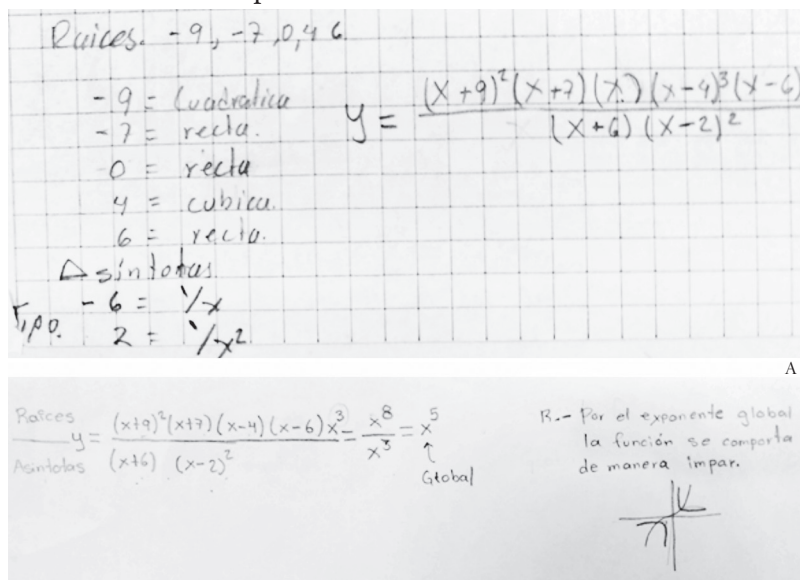 Raices. -9, -7, 0, 4 6.
-9 = Cuadratica
-7 = recta.
0 = recta
4 = cubica.
6 = recta.
y = (x+9)²(x+7)(x)(x-4)³(x-6) / (x+6)(x-2)²
Asintotas
Tipo. -6 = 1/x
2 = 1/x²
A
Raíces / Asíntotas y = (x+9)²(x+7)(x-4)(x-6)x³ / (x+6)(x-2)² = x⁸ / x³ = x⁵
↑
Global
R.- Por el exponente global
la función se comporta
de manera impar.